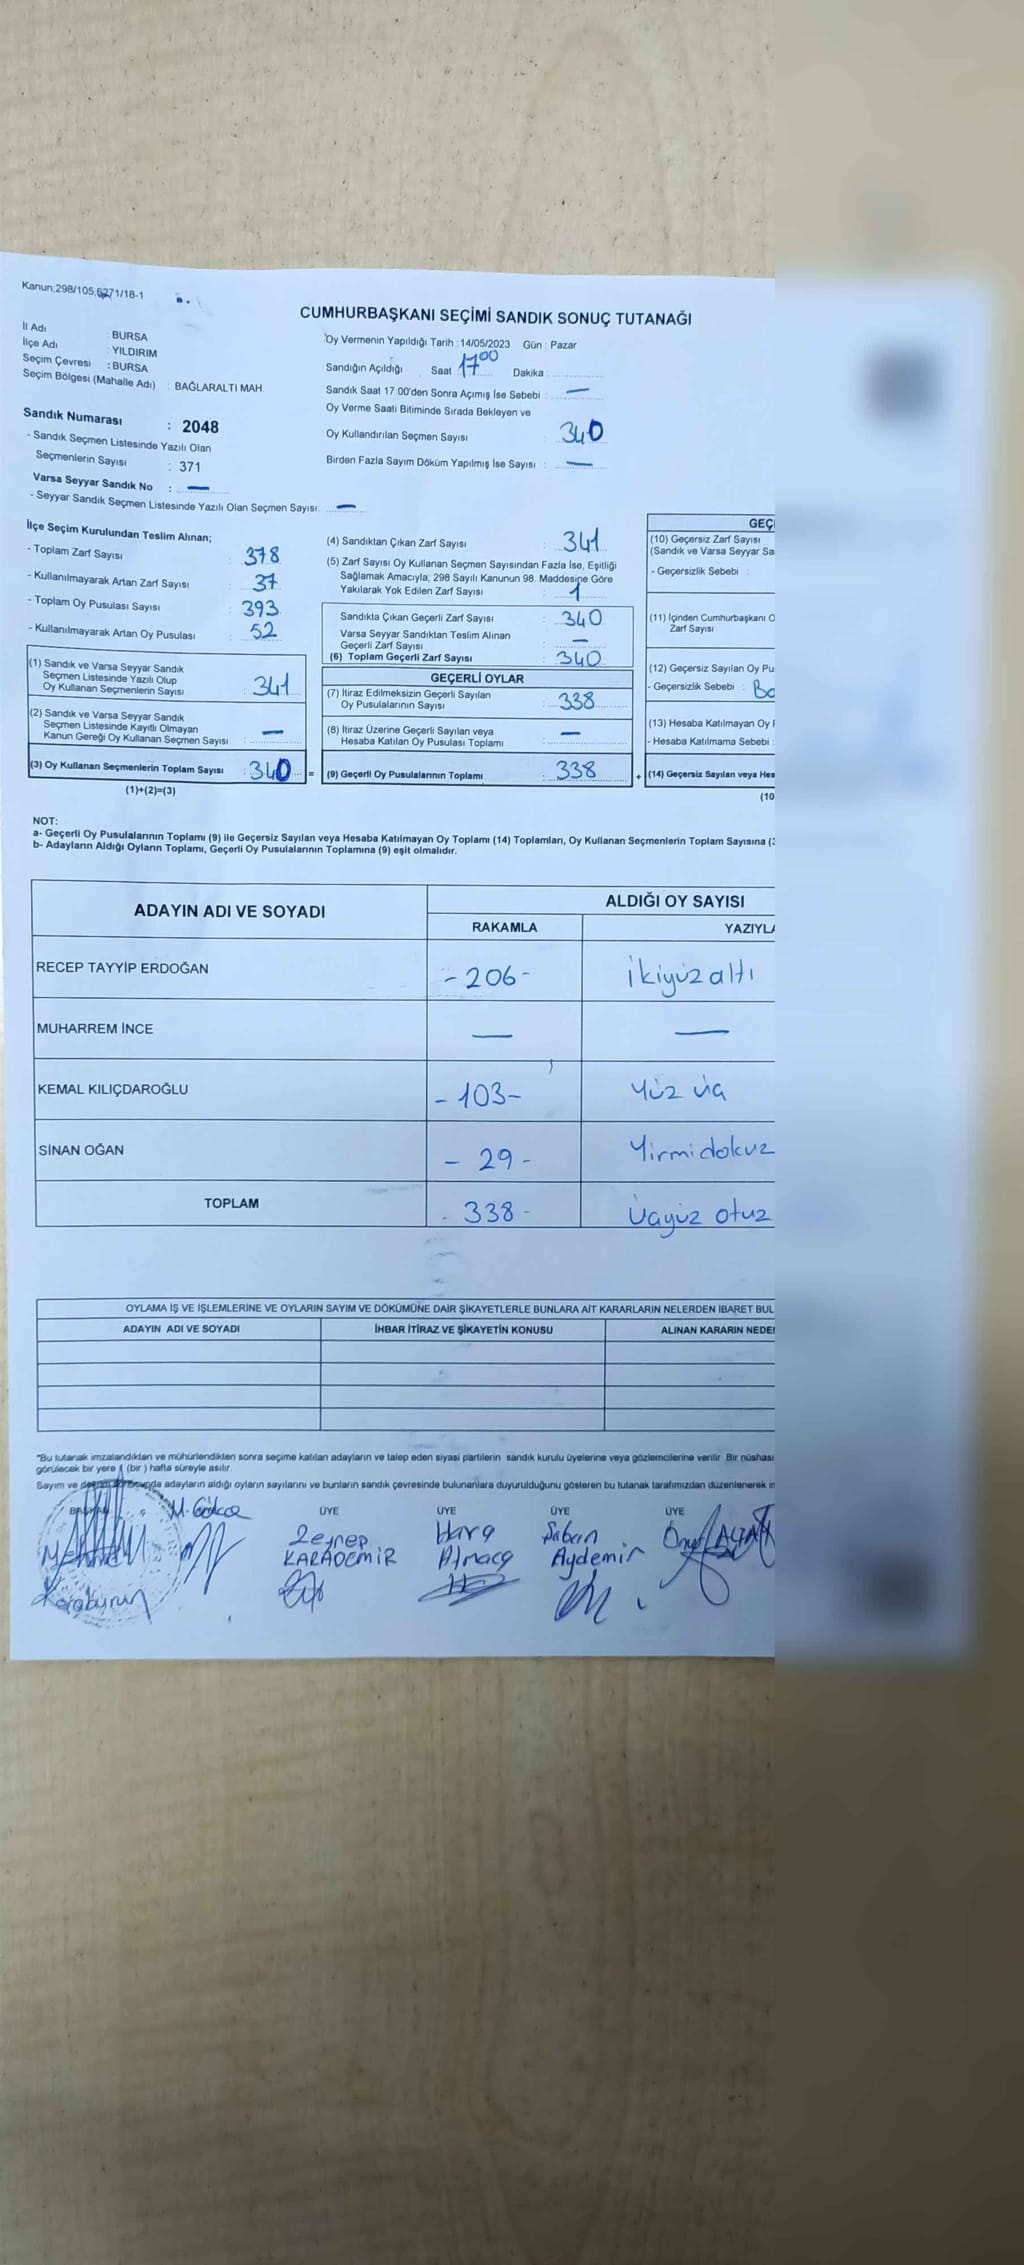 Kanun;298/105;6271/18-1
CUMHURBAŞKANI SEÇİMİ SANDIK SONUÇ TUTANAĞI
İl Adı : BURSA
İlçe Adı : YILDIRIM
Seçim Çevresi : BURSA
Seçim Bölgesi (Mahalle Adı) : BAĞLARALTI MAH.
Oy Vermenin Yapıldığı Tarih : 14/05/2023 Gün : Pazar
Sandığın Açıldığı Saat 17 00 Dakika :
Sandık Saat 17:00'den Sonra Açımış İse Sebebi : —
Oy Verme Saati Bitiminde Sırada Bekleyen ve
Oy Kullandırılan Seçmen Sayısı : 340
Birden Fazla Sayım Döküm Yapılmış İse Sayısı : —
Sandık Numarası : 2048
- Sandık Seçmen Listesinde Yazılı Olan
Seçmenlerin Sayısı : 371
Varsa Seyyar Sandık No : —
- Seyyar Sandık Seçmen Listesinde Yazılı Olan Seçmen Sayısı: —
İlçe Seçim Kurulundan Teslim Alınan;
- Toplam Zarf Sayısı : 378
- Kullanılmayarak Artan Zarf Sayısı : 37
- Toplam Oy Pusulası Sayısı : 393
- Kullanılmayarak Artan Oy Pusulası : 52
(1) Sandık ve Varsa Seyyar Sandık
Seçmen Listesinde Yazılı Olup
Oy Kullanan Seçmenlerin Sayısı : 341
(2) Sandık ve Varsa Seyyar Sandık
Seçmen Listesinde Kayıtlı Olmayan
Kanun Gereği Oy Kullanan Seçmen Sayısı : —
(3) Oy Kullanan Seçmenlerin Toplam Sayısı : 340 =
(1)+(2)=(3)
(4) Sandıktan Çıkan Zarf Sayısı : 341
(5) Zarf Sayısı Oy Kullanan Seçmen Sayısından Fazla İse, Eşitliği
Sağlamak Amacıyla; 298 Sayılı Kanunun 98. Maddesine Göre
Yakılarak Yok Edilen Zarf Sayısı : 1
Sandıkta Çıkan Geçerli Zarf Sayısı : 340
Varsa Seyyar Sandıktan Teslim Alınan
Geçerli Zarf Sayısı : —
(6) Toplam Geçerli Zarf Sayısı : 340
GEÇERLİ OYLAR
(7) İtiraz Edilmeksizin Geçerli Sayılan
Oy Pusulalarının Sayısı : 338
(8) İtiraz Üzerine Geçerli Sayılan veya
Hesaba Katılan Oy Pusulası Toplamı : —
(9) Geçerli Oy Pusulalarının Toplamı : 338 +
(10) Geçersiz Zarf Sayısı
(Sandık ve Varsa Seyyar
- Geçersizlik Sebebi :
(11) İçinden Cumhurbaşkanı
Zarf Sayısı
(12) Geçersiz Sayılan Oy
- Geçersizlik Sebebi :
(13) Hesaba Katılmayan Oy
- Hesaba Katılmama Sebebi :
(14) Geçersiz Sayılan veya
(10
NOT:
a- Geçerli Oy Pusulalarının Toplamı (9) ile Geçersiz Sayılan veya Hesaba Katılmayan Oy Toplamı (14) Toplamları, Oy Kullanan Seçmenlerin Toplam Sayısına
b- Adayların Aldığı Oyların Toplamı, Geçerli Oy Pusulalarının Toplamına (9) eşit olmalıdır.
ADAYIN ADI VE SOYADI
ALDIĞI OY SAYISI
RAKAMLA
RECEP TAYYİP ERDOĞAN - 206 - İkiyüz altı
MUHARREM İNCE — —
KEMAL KILIÇDAROĞLU - 103 - Yüz üç
SİNAN OĞAN - 29 - Yirmi dokuz
TOPLAM - 338 - Üçyüz otuz
OYLAMA İŞ VE İŞLEMLERİNE VE OYLARIN SAYIM VE DÖKÜMÜNE DAİR ŞİKAYETLERLE BUNLARA AİT KARARLARIN NELERDEN İBARET
ADAYIN ADI VE SOYADI İHBAR İTİRAZ VE ŞİKAYETİN KONUSU ALINAN KARARIN
*Bu tutanak imzalandıktan ve mühürlendikten sonra seçime katılan adayların ve talep eden siyasi partilerin sandık kurulu üyelerine veya gözlemcilerine verilir. Bir nüshası
görülecek bir yere 1 (bir ) hafta süreyle asılır.
Sayım ve adayların aldığı oyların sayılarını ve bunların sandık çevresinde bulunanlara duyurulduğunu gösteren bu tutanak tarafımızdan düzenlenerek
BAŞKAN M. Gökce ÜYE ÜYE ÜYE ÜYE
Zeynep Şaban
KARADEMİR Aydemir
Karaburun